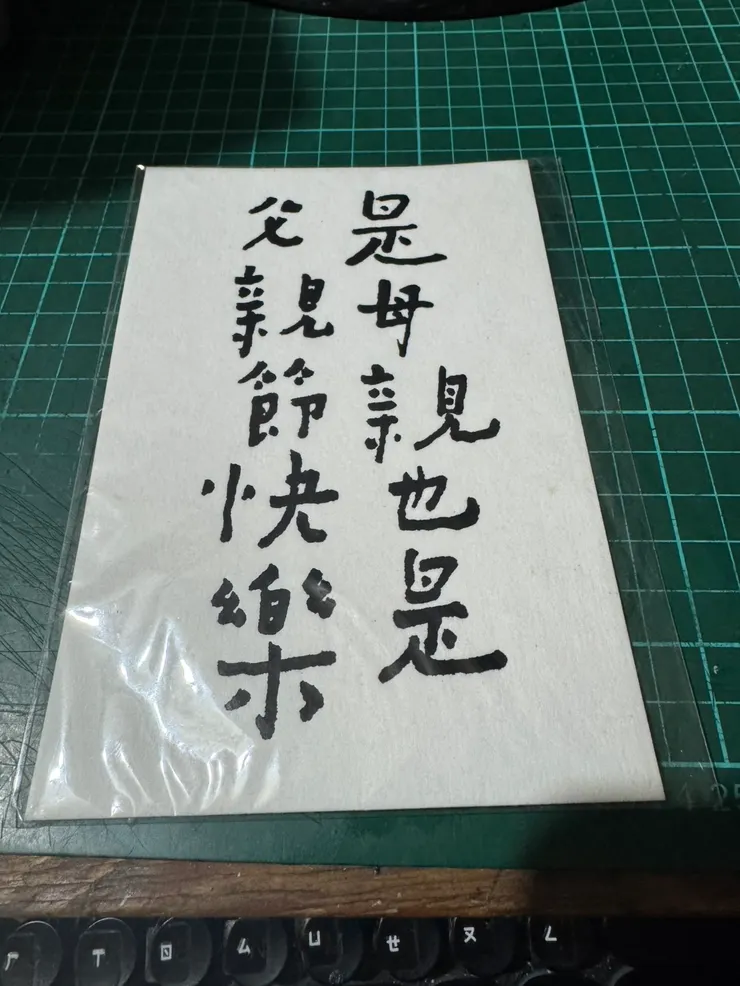 是母親也是
父親節快樂
ㄏㄒㄖㄙㄩㄝㄡㄥ
125